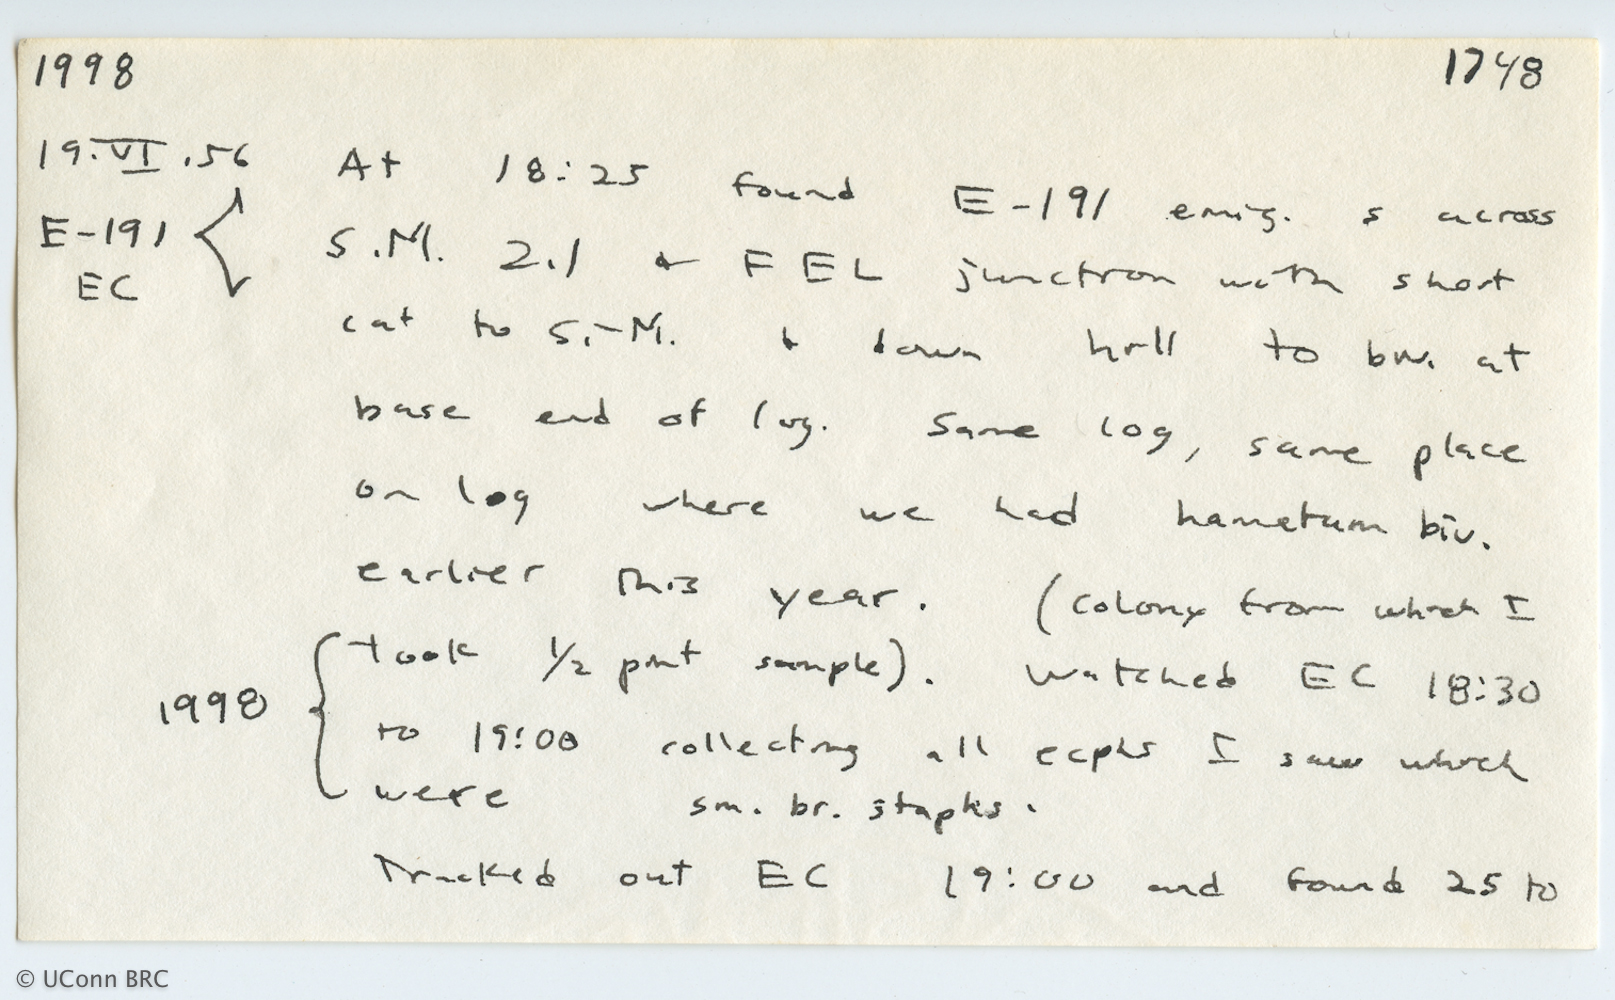 1998 1748
19.VI.56 At 18:25 found E-191 emig. s across
E-191 S.M. 2.1 & FEL junction with short
EC cut to S.-M. & down hill to biv. at
base end of log. Same log, same place
on log where we had hamatum biv.
earlier this year. (colony from which I
took 1/2 pint sample). Watched EC 18:30
1998 to 19:00 collecting all ecphs I saw which
were sm. br. staphs.
Tracked out EC 19:00 and found 25 to
© UConn BRC